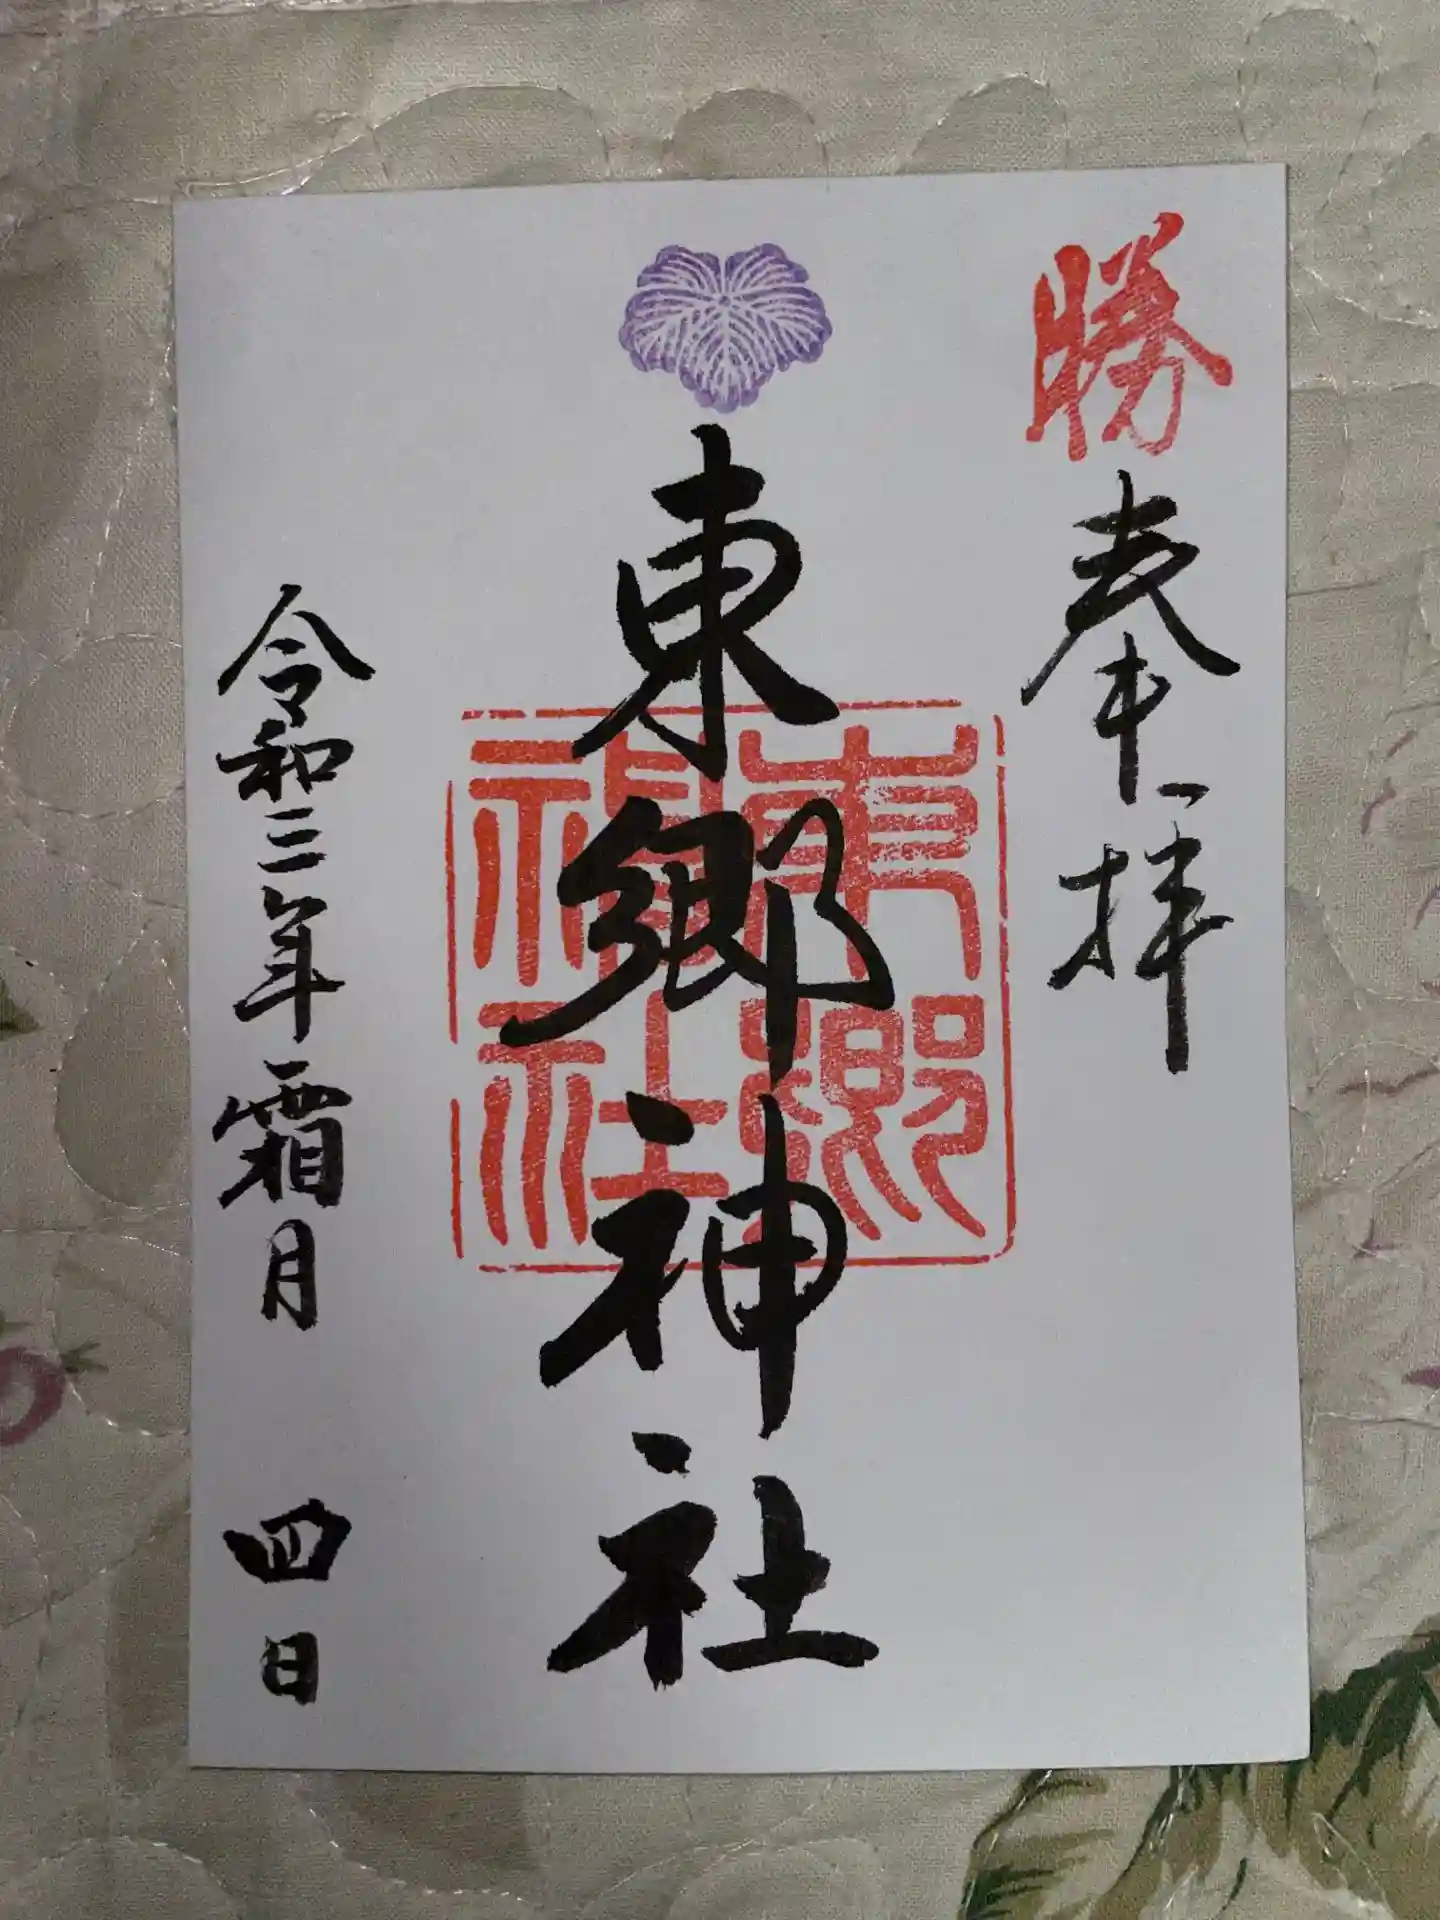 勝
奉拝
東郷神社
東郷神社
令和三年霜月 四日